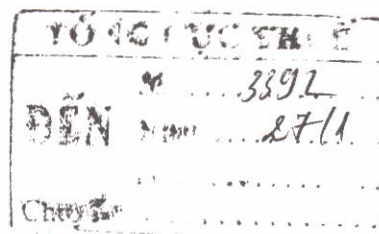 TỔNG CỤC THUẾ
ĐẾN
Số ..... 3392
Ngày ..... 27/1
Chuyển